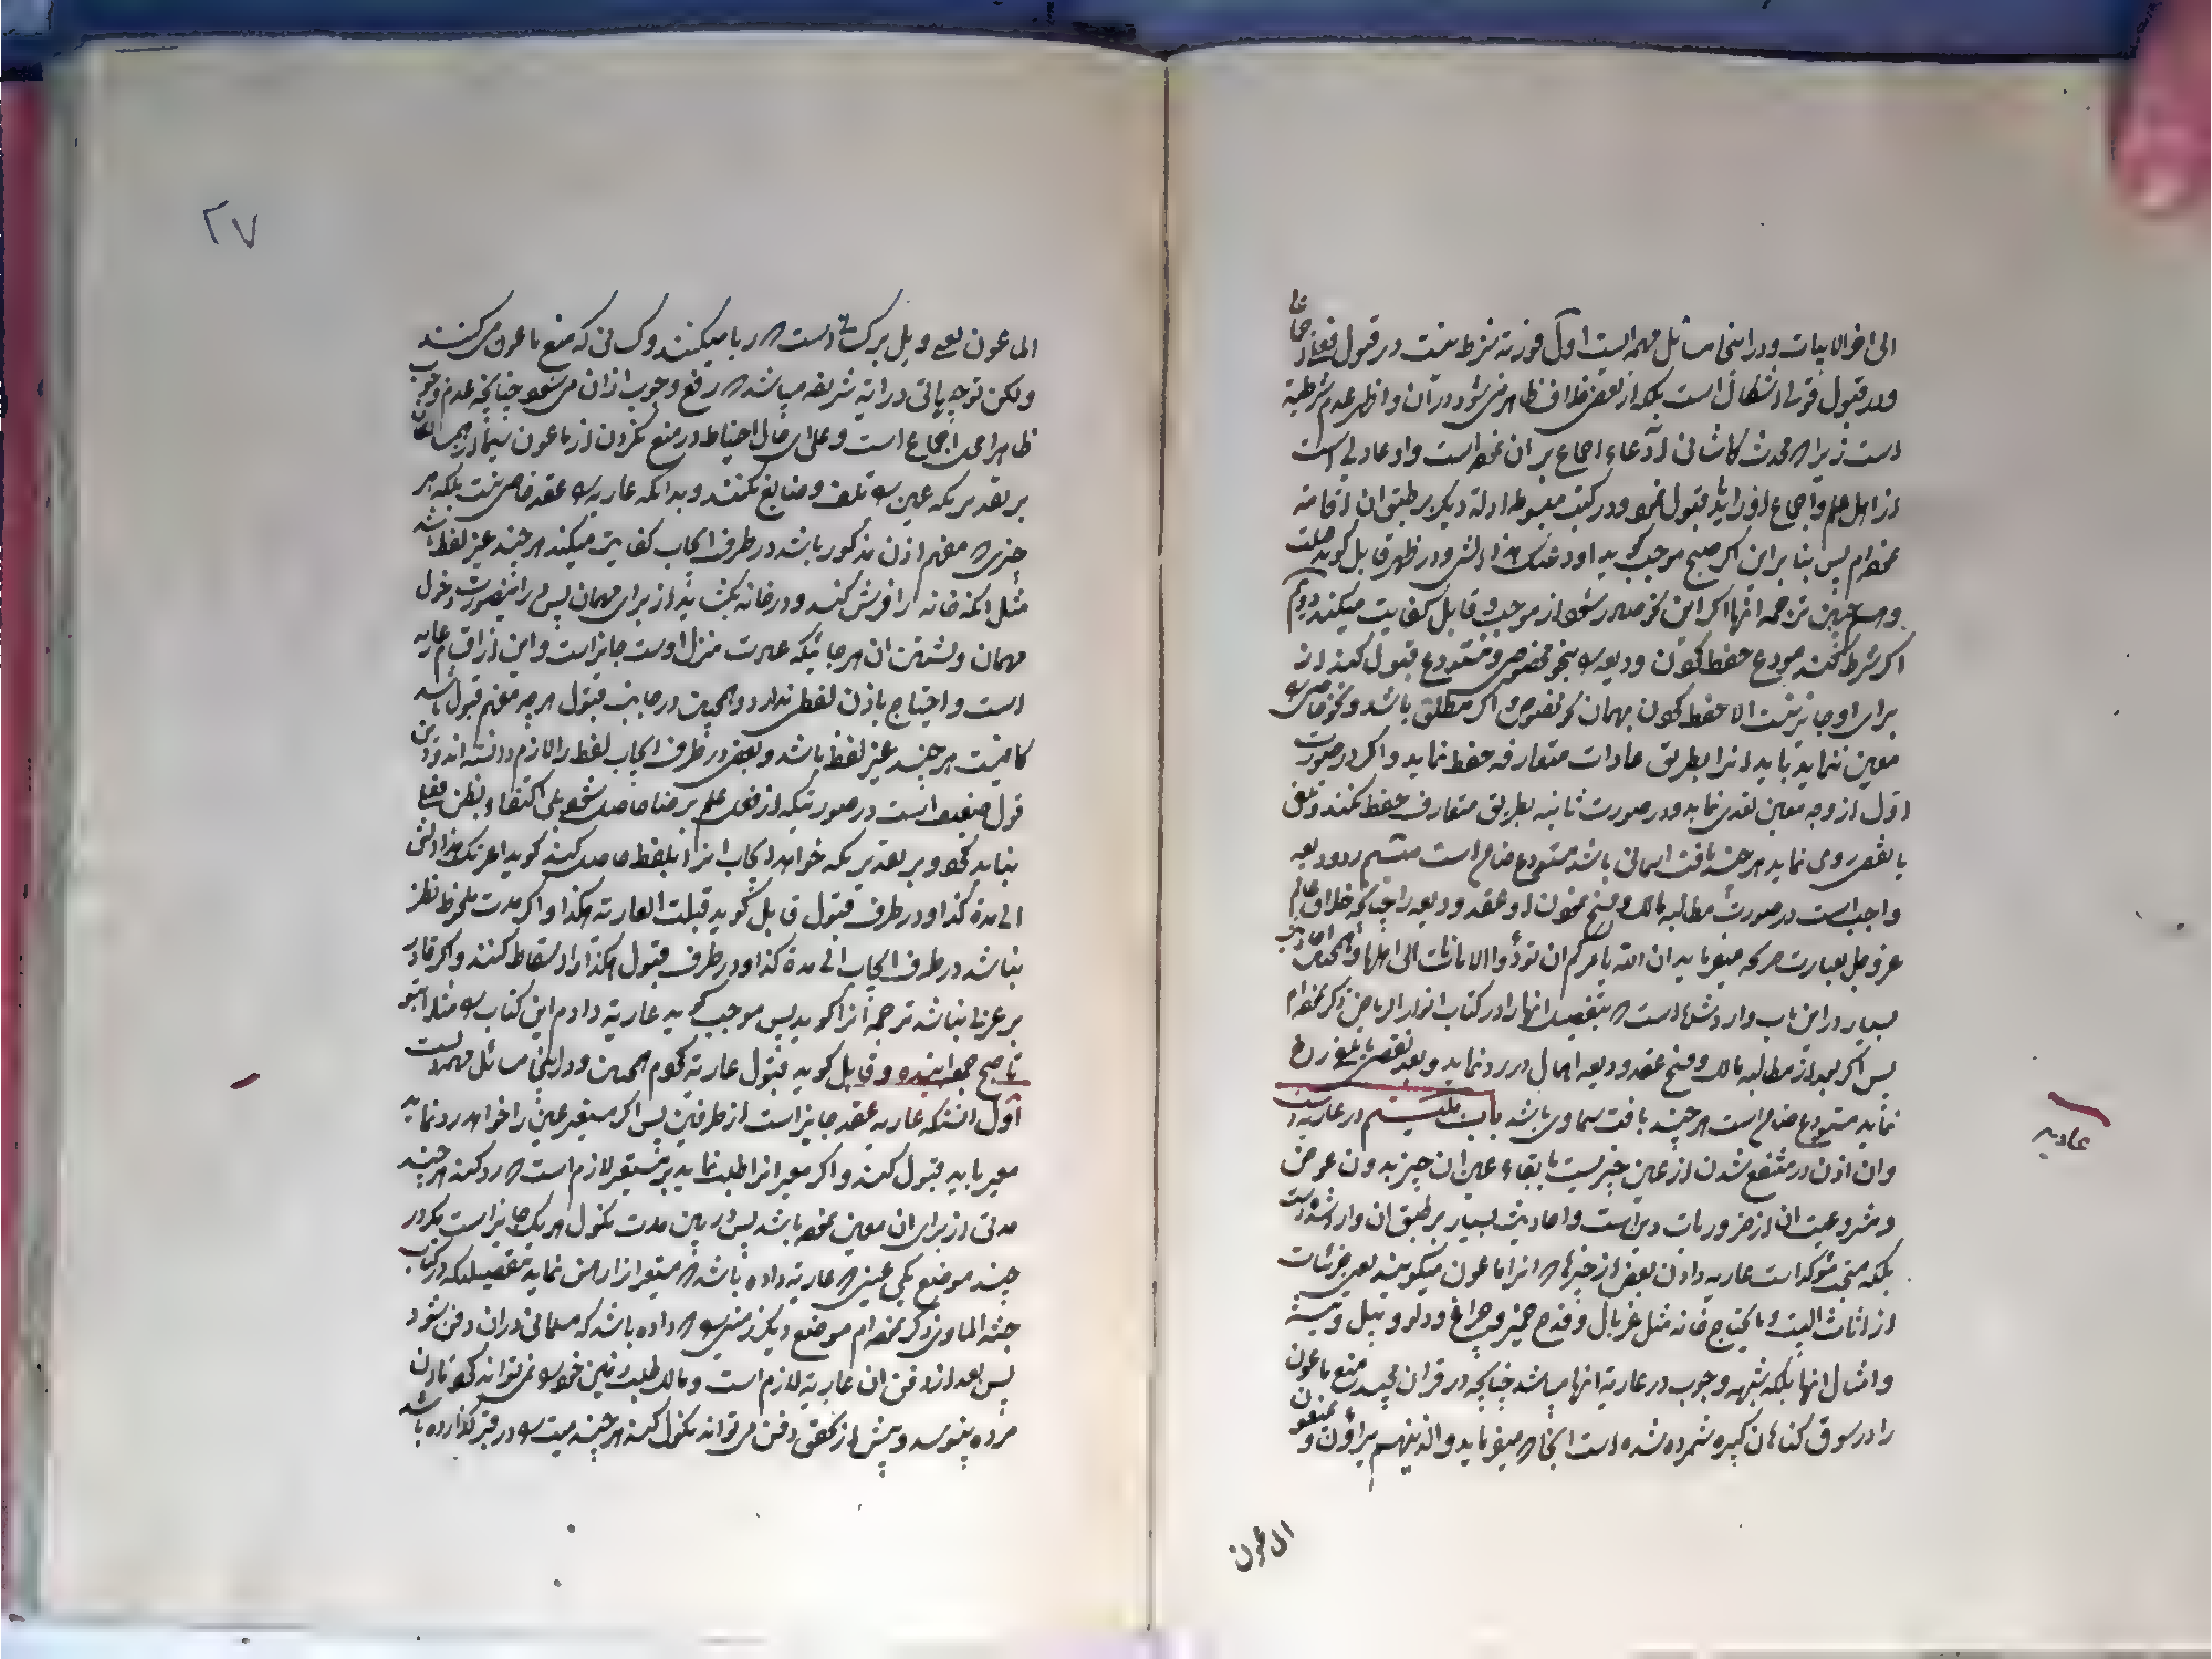 الی اخر الابیات و در اینجا مسائل مهمه است اول فوریة شرط نیست در قبول فعلی
و در قبول قولی اشکال است بلکه از بعض ظاهر می‌شود در آن و اظهر عدم شرطیة
است زیرا که محدث کاشانی ادعاء اجماع بر ان نموده است و او عادلی است
از اهل علم و اجماع او را باید قبول نمود و در کتب مبسوطه ادله دیگر بر طبق ان اقامه
نموده‌ام پس بنا براین اگر صبح موجب گوید اودعتک هذا الشئ و در ظهر قابل گوید قبلت
و همچنین ترجمه انها اگر این نحو صادر شود از موجب و قابل کفایت میکند دویم
اگر شرط کند مودع حفظ کردن ودیعه را بنحو مخصوص و مستودع قبول کند از
برای او جایز نیست الا حفظ کردن بهمان نحو مخصوص و اگر مطلق باشد و نحو خاصی را
معین ننماید باید انرا بطریق عادات متعارفه حفظ نماید و اگر در صورت
اول از وجه معین تعدی نماید و در صورت ثانیه بطریق متعارف حفظ نکند و تلف
یا نقص روی نماید هر چند بافت اسمانی باشد مستودع ضامن است سیم رد ودیعه
واجب است در صورت مطالبه مالک و فسخ نمودن او عقد ودیعه را چنانچه خلاق عالم
عز و جل بعبارت صریحه میفرماید ان الله یامرکم ان تؤدوا الامانات الی اهلها و همچنین احادیث
بسیار در این باب وارد شده است که بتفصیل انها را در کتاب انوار الریاض ذکر نموده‌ام
پس اگر بعد از مطالبه مالک و فسخ عقد ودیعه اهمال در رد نماید و بعد نقص یا تلف رخ
نماید مستودع ضامن است هر چند بافت سماوی باشد باب بیستم در عاریه است
وان اذن در منتفع شدن از عین چیزیست با بقاء عین ان چیز بدون عوض
و مشروعیت ان از ضروریات دین است و احادیث بسیار بر طبق ان وارد شده است
بلکه مستحب مؤکد است عاریه دادن بعض از چیزها که انرا ماعون میگویند یعنی جزئیات
از اثاث البیت و ما یحتاج خانه مثل غربال و قدح خمیر و چراغ و دلو و بیل و تیشه
و امثال انها بلکه شبهه وجوب در عاریة انها میباشد چنانچه در قران مجید منع ماعون
را در سوق کناهان کبیره شمرده شده است انجا که میفرماید والذینهم یراؤن و یمنعون
الماعون
عاریه
۲۷
الماعون یعنی ویل برای کسانی است که ریا میکنند و کسانی که منع ماعون می‌کنند
ولکن توجیهاتی در ایه شریفه میباشد که رفع وجوب از ان می‌شود چنانچه عدم وجوب
ظاهرا محل اجماع است و علی ای حال احتیاط در منع نکردن از ماعون سیما از
بر تقدیریکه عین را تلف و ضایع نکنند و بدانکه عاریه را عقد خاصی نیست بلکه هر
چیزی که مفهم اذن مذکور باشد در طرف ایجاب کفایت میکند هر چند غیر لفظ باشد
مثل انکه خانه را فرش کند و در خانه بگشاید از برای مهمان پس در اینصورت دخول
مهمان و نشستن ان هر جائیکه عادت منزل اوست جایز است و این از اقسام عاریه
است و احتیاج باذن لفظی ندارد و همچنین در جانب قبول هر چه مفهم قبول باشد
کافیست هر چند غیر لفظ باشد و بعض در طرف ایجاب لفظ را لازم دانسته اند و این
قول ضعیف است در صورتیکه از فعل علم برضا حاصل شود بلی اکتفاء بظن فعلی
نباید کرد و بر تقدیریکه خواهد ایجاب انرا بلفظ حاصل کند گوید اعرتک هذا الشئ
الی مدة کذا و در طرف قبول قابل گوید قبلت العاریة هکذا و اگر مدت ملحوظ نظر
نباشد در طرف ایجاب الی مدة کذا و در طرف قبول هکذا را اسقاط کنند و اگر قادر
بر عربی نباشد ترجمه انرا گوید پس موجب گوید عاریة دادم این کتاب را مثلا بتو
تا صبح جمعه اینده و قابل گوید قبول عاریة کردم همچنین و در اینجا مسائل مهمه است
اول انستکه عاریه عقد جایز است از طرفین پس اگر مستعیر عین را خواهد رد نماید
معیر باید قبول کند و اگر معیر انرا طلب نماید بر مستعیر لازم است که رد کند هر چند
مدتی از برای ان معین نموده باشد پس در بین مدت نکول هر یک جایز است مگر در
چند موضع یکی عینی که عاریة داده باشد که مستعیر انرا رهن نماید بتفصیلیکه در کتاب
جنة الماوی ذکر نموده‌ام موضع دیگر زمینی را که داده باشد که مسلمانی در ان دفن شود
پس بعد از دفن ان عاریة لازم است و مالک طلب زمین خود را نمی‌تواند کرد تا ان
مرده بپوسد و پیش از تحقق دفن می‌تواند نکول کند هر چند میت را در قبر گذارده باشد